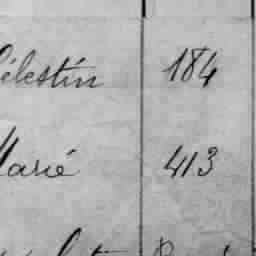 Célestin 184
Marié 413